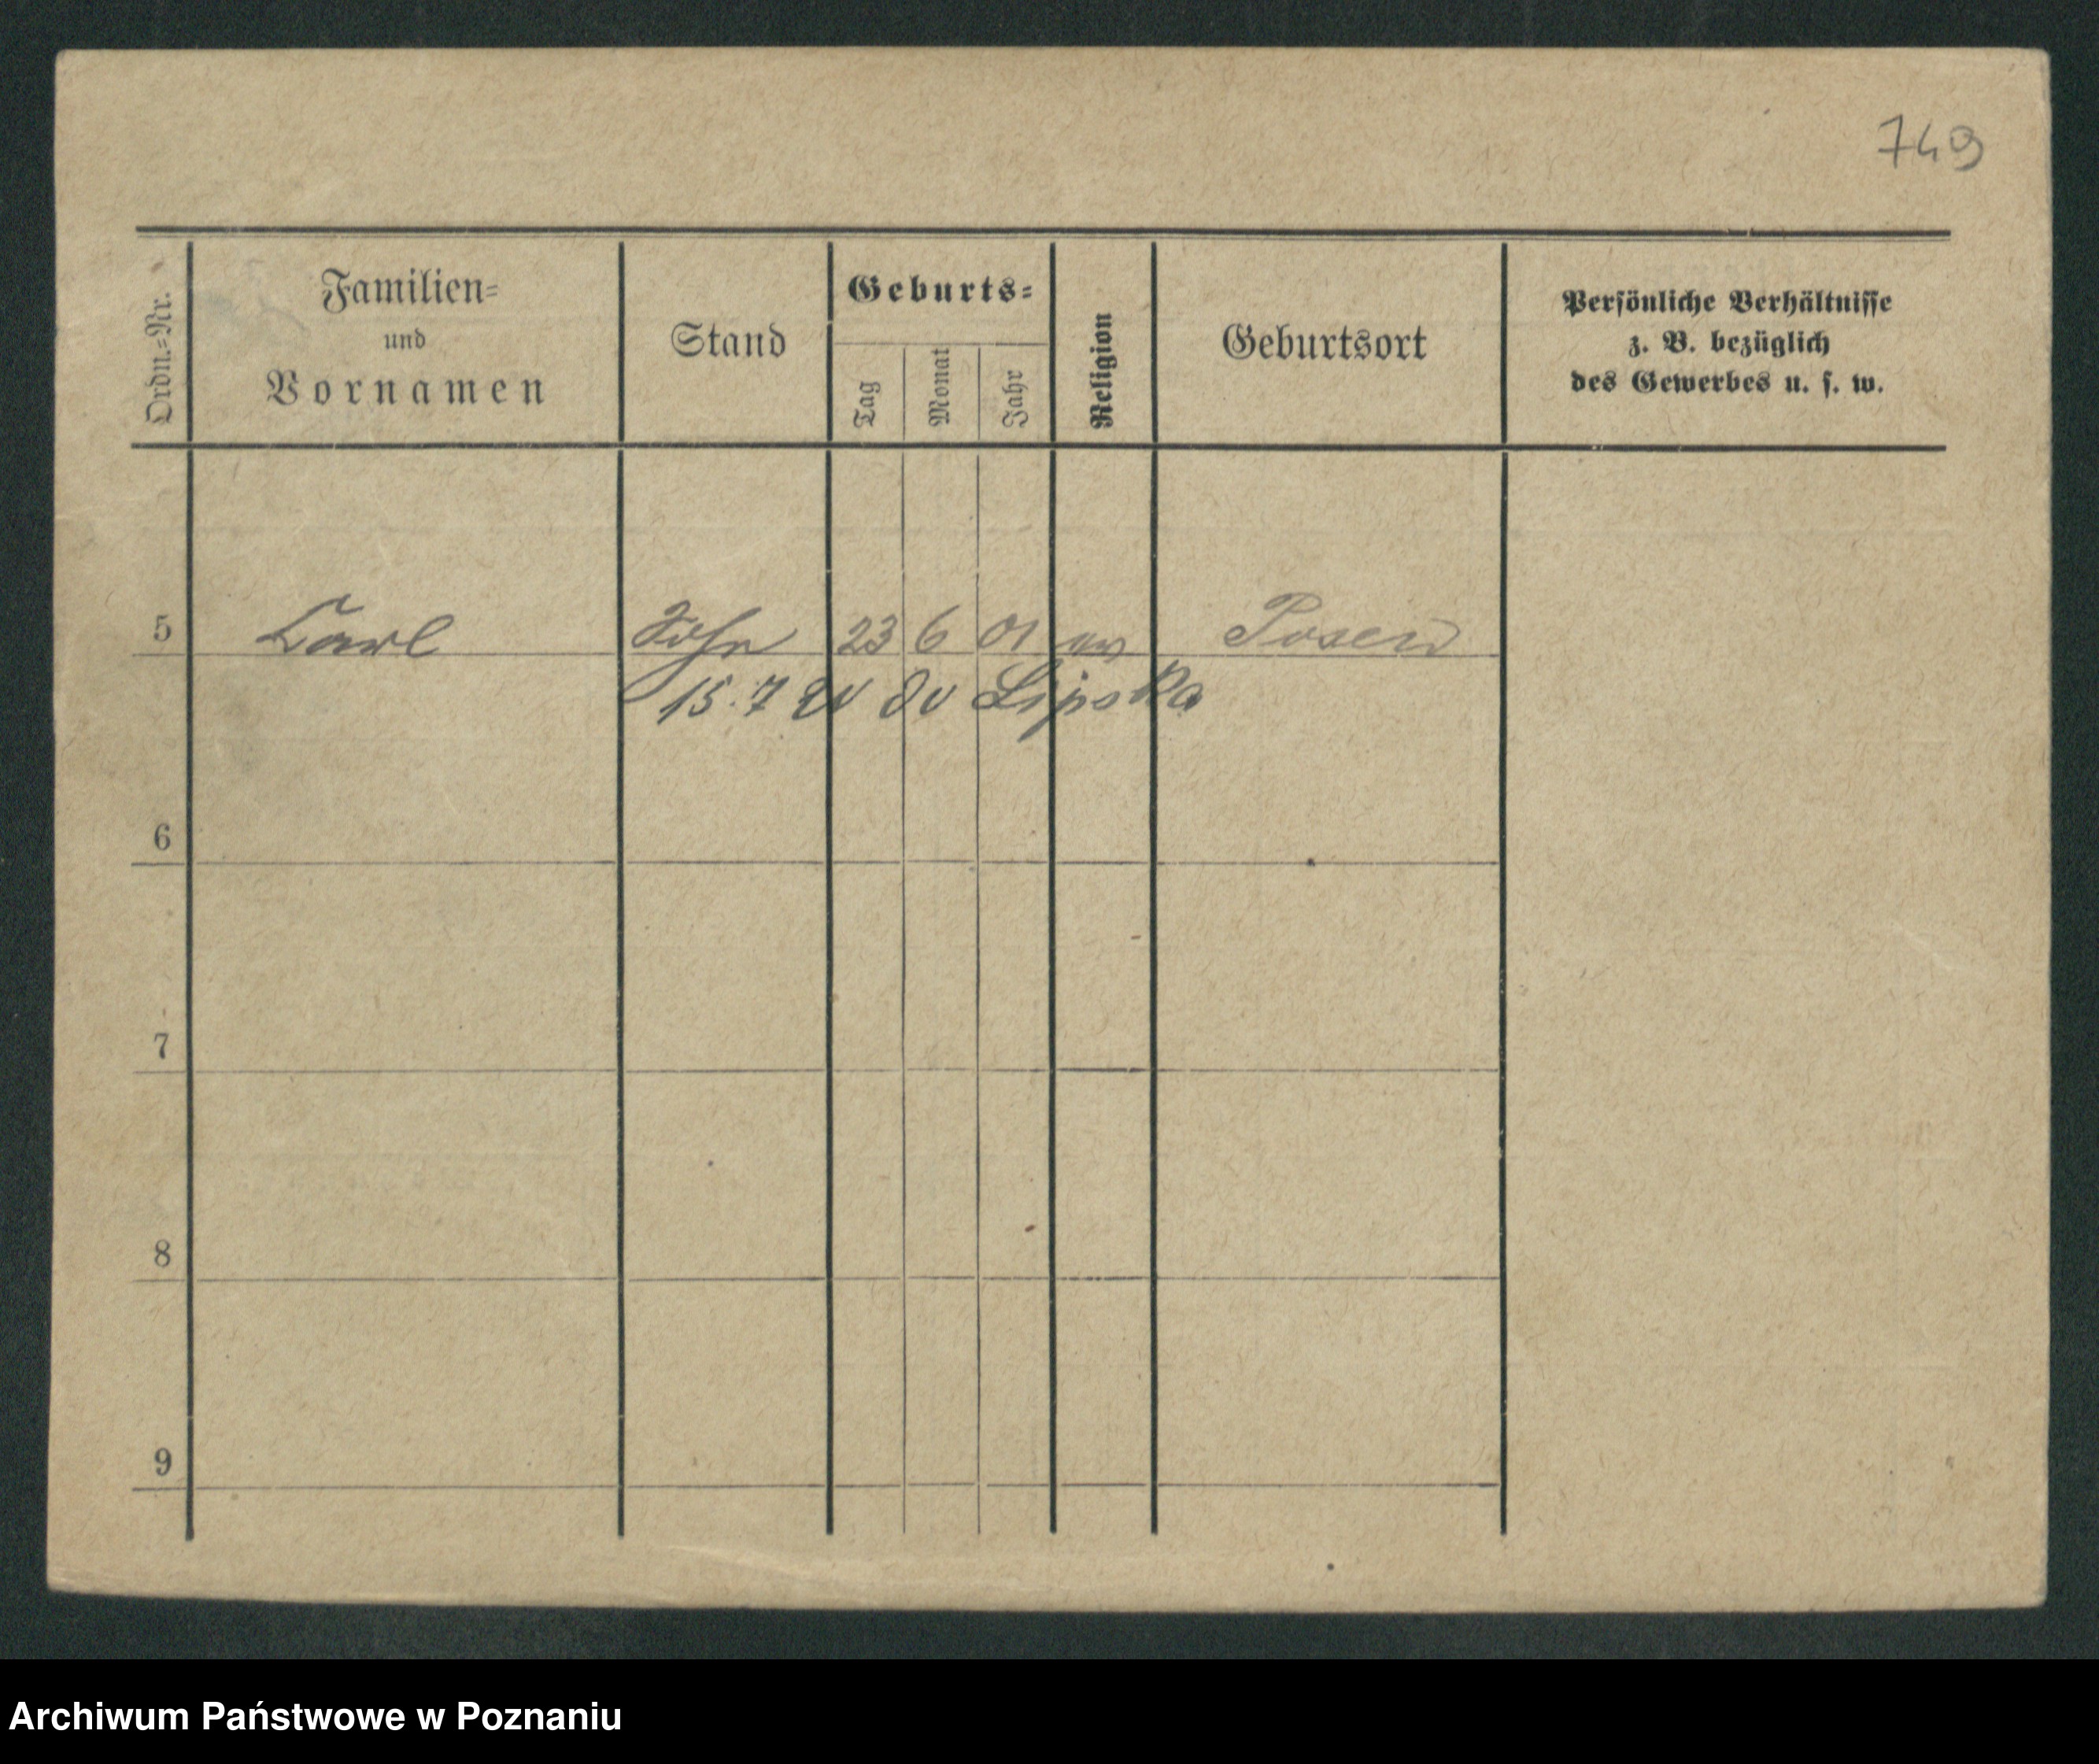 749
Ordn.=Nr.
Familien=
und
Vornamen
Stand
Geburts=
Tag
Monat
Jahr
Religion
Geburtsort
Persönliche Verhältnisse
z. B. bezüglich
des Gewerbes u. s. w.
5 Carl Sohn 23 6 01 ev Posen
15.7 Lipska
6
7
8
9
Archiwum Państwowe w Poznaniu